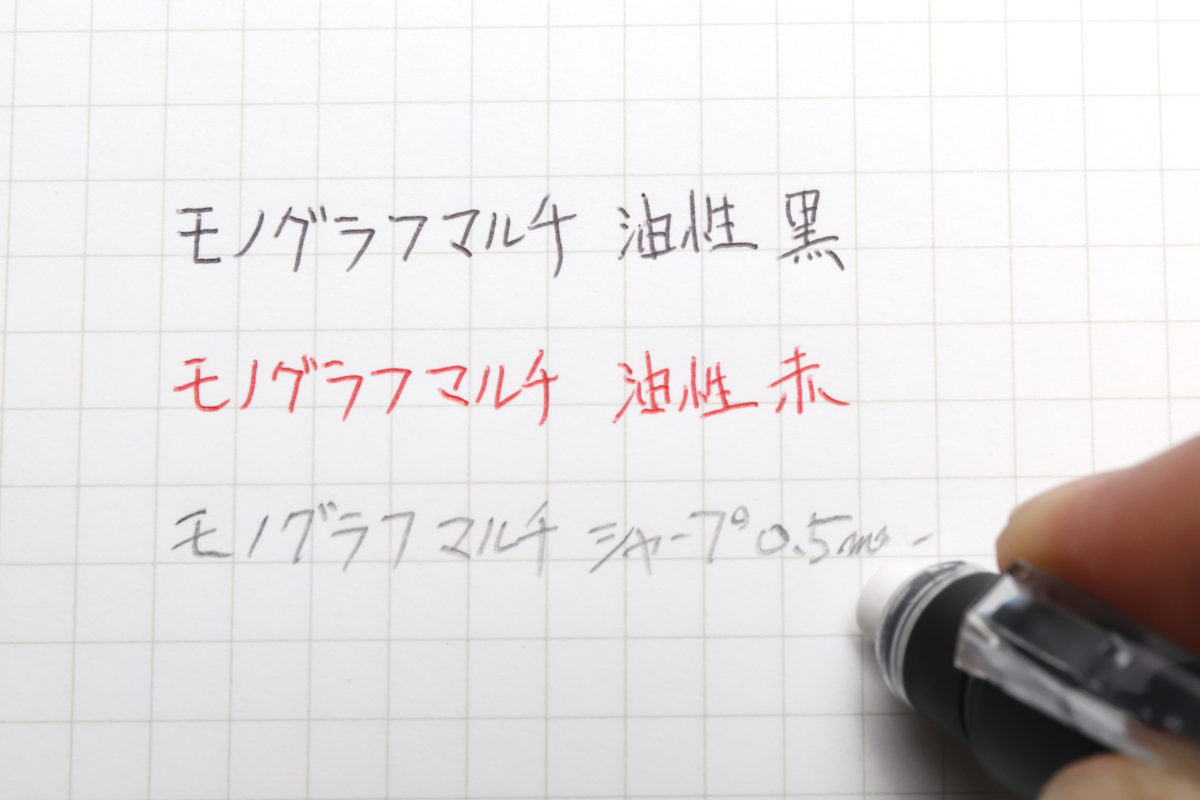 モノグラフマルチ 油性 黒
モノグラフマルチ 油性 赤
モノグラフマルチ シャープ 0.5mm